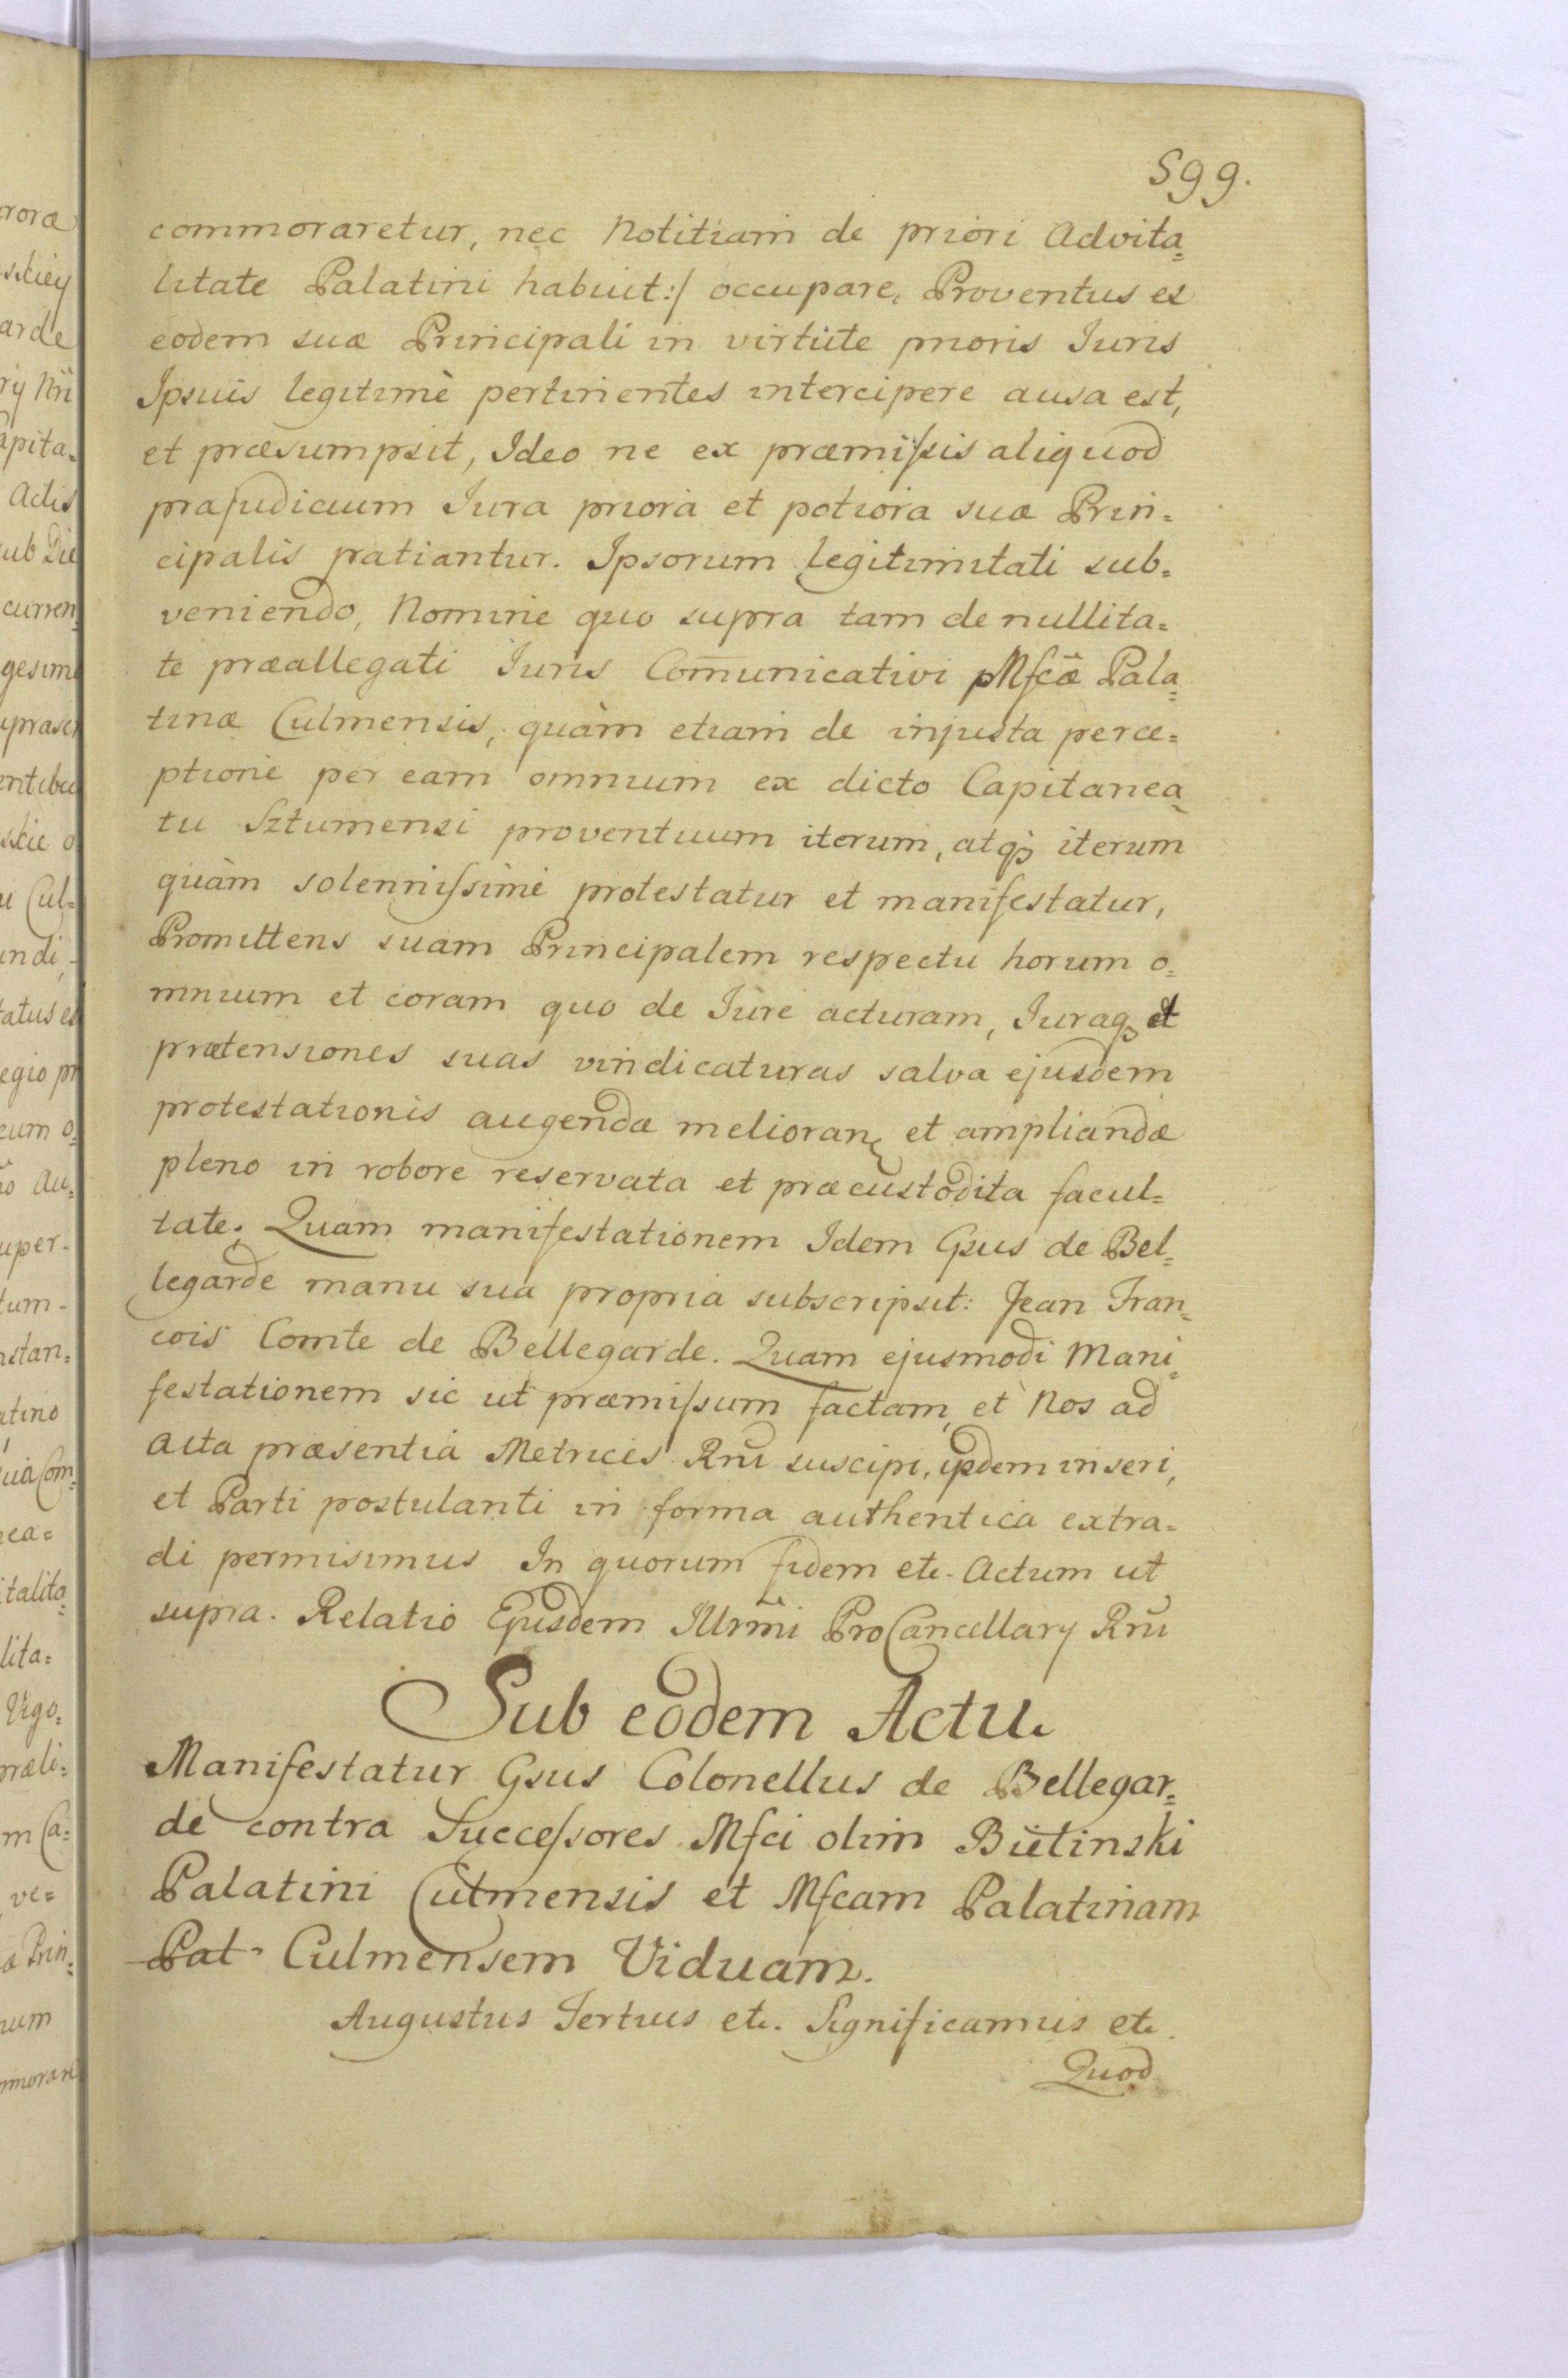 599.
commoraretur, nec Notitiam de priori Advita=
litate Palatini habuit:/ occupare, Proventus ex
eodem suæ Principali in virtute prioris Iuris
Ipsius legitimè pertinentes intercipere ausa est,
et præsumpsit, Ideo ne ex præmissis aliquod
præjudicium Iura priora et potiora suæ Prin=
cipalis patiantur. Ipsorum legitimitati sub=
veniendo, Nomine quo supra tam de nullita=
te præallegati Iuris Com̅unicativi Mfcæ Pala=
tinæ Culmensis, quàm etiam de injusta perce=
ptione per eam omnium ex dicto Capitanea=
tu Sztumensi proventuum iterum, atq3 iterum
quàm solennissimè protestatur et manifestatur,
Promittens suam Principalem respectu horum o=
mnium et coram quo de Iure acturam, Iuraq3 et
prætensiones suas vindicaturas salva ejusdem
protestationis augendæ melioran et ampliandæ
pleno in robore reservata et præcustodita facul=
tate. Quam manifestationem Idem Gsus de Bel=
legarde manu sua propria subscripsit: Jean Fran=
cois Comte de Bellegarde. Quam ejusmodi Mani=
festationem sic ut præmissum factam, et Nos ad
acta præsentia Metrices Rni suscipi, ijsdem inseri,
et Parti postulanti in forma authentica extra=
di permisimus In quorum fidem etc. Actum ut
supra. Relatio Ejusdem Illrmi ProCancellary Rni
Sub eodem Actu.
Manifestatur Gsus Colonellus de Bellegar=
de contra Successores Mfci olim Bielinski
Palatini Culmensis et Mfcam Palatinam
Pal Culmensem Viduam.
Augustus Tertius etc. Significamus etc.
Quod
rora
skiey
arde
ry Nri
apita=
Actis
ub Die
curren=
gesim
upras
entibu
skie o
u Cul=
indi,
tatus e
egio pr
cum o=
Au=
uper=
tum=
nstan=
atino
uia Com=
nea=
italita=
lita=
Vigo=
præli=
m Ca=
ve=
æ Prin=
num
mmorare